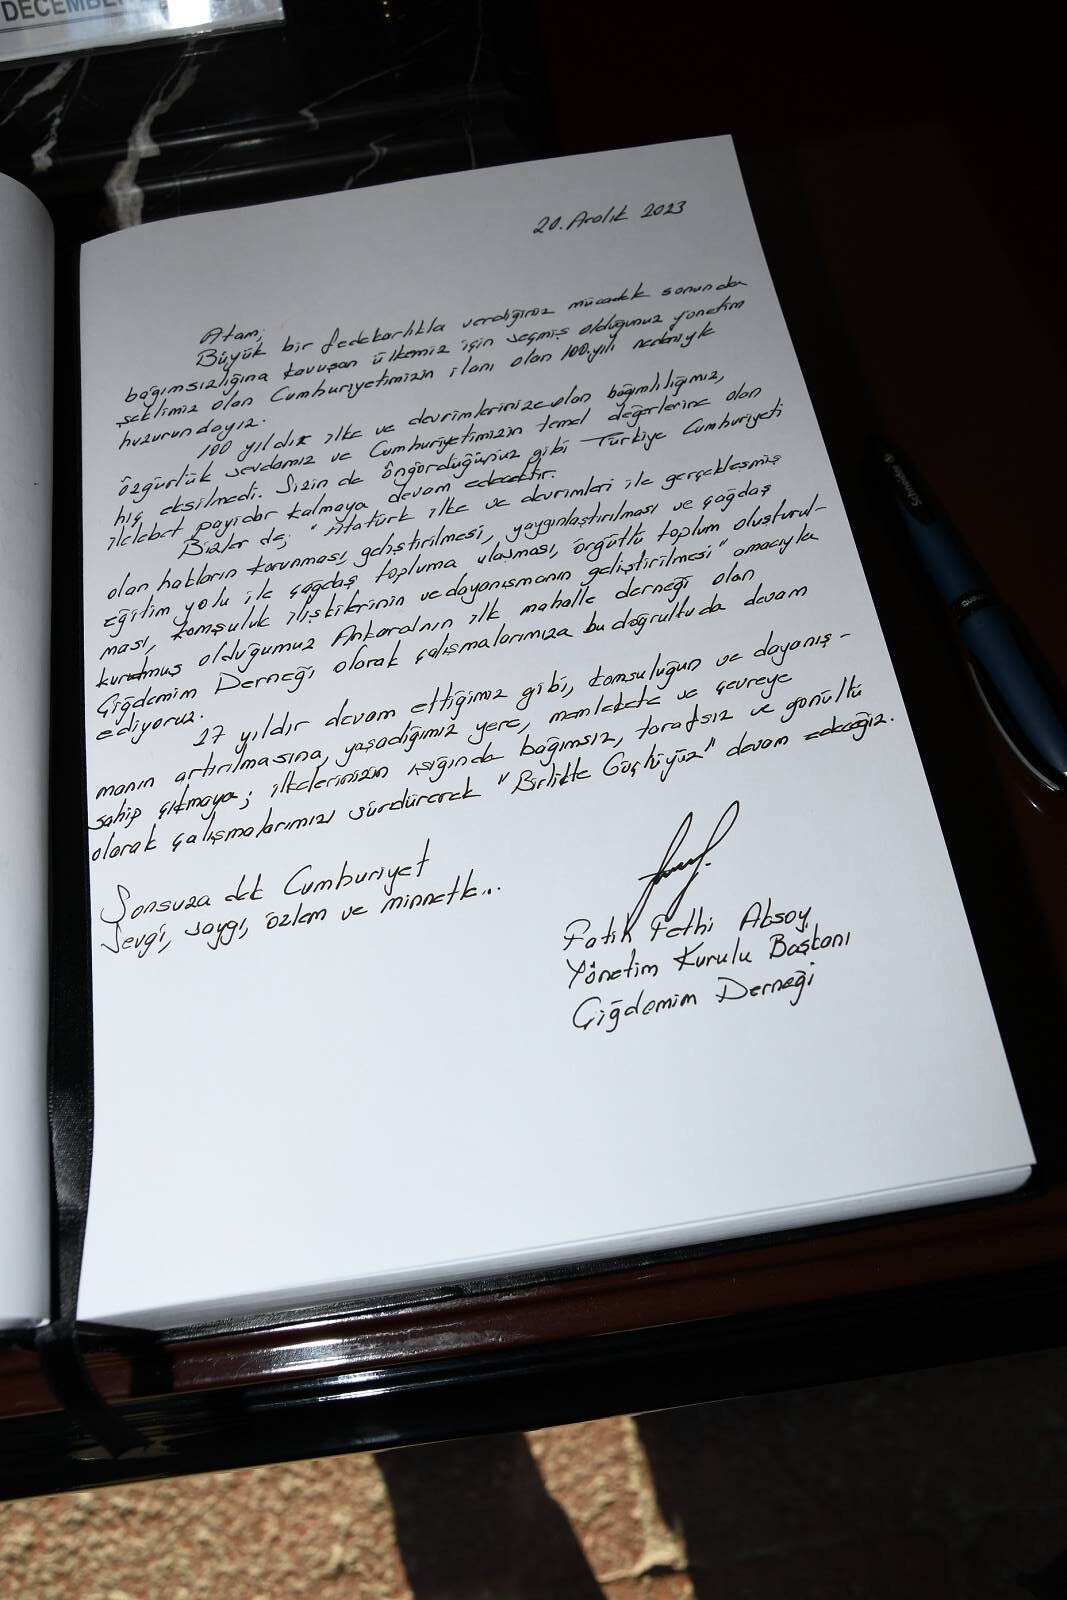 DECEMBER
20. Aralık 2023
Atam;
Büyük bir fedekarlıkla verdiğiniz mücadele sonunda
bağımsızlığına kavuşan ülkemiz için seçmiş olduğunuz yönetim
şeklimiz olan Cumhuriyetimizin ilanı olan 100.yılı nedeniyle
huzurundayız.
100 yıldır ilke ve devrimlerinize olan bağımlılığımız,
özgürlük sevdamız ve Cumhuriyetimizin temel değerlerine olan
hiç eksilmedi. Sizin de öngördüğünüz gibi Türkiye Cumhuriyeti
ilelebet payidar kalmaya devam edecektir.
Bizler de; "Atatürk ilke ve devrimleri ile gerçekleşmiş
olan hakların korunması, geliştirilmesi, yaygınlaştırılması ve çağdaş
eğitim yolu ile çağdaş topluma ulaşması, örgütlü toplum oluşturul-
ması, komşuluk ilişkilerinin ve dayanışmanın geliştirilmesi" amacıyla
kurulmuş olduğumuz Ankara'nın ilk mahalle derneği olan
Çiğdemim Derneği olarak çalışmalarımıza bu doğrultuda devam
ediyoruz.
27 yıldır devam ettiğimiz gibi, komşuluğun ve dayanış-
manın artırılmasına, yaşadığımız yere, memlekete ve çevreye
sahip çıkmaya; ilkelerinizin ışığında bağımsız, tarafsız ve gönüllü
olarak çalışmalarımızı sürdürerek "Birlikte Güçlüyüz" devam edeceğiz.
Sonsuza dek Cumhuriyet
Sevgi, saygı, özlem ve minnetle...
Fatih Fethi Aksoy
Yönetim Kurulu Başkanı
Çiğdemim Derneği
Schneider